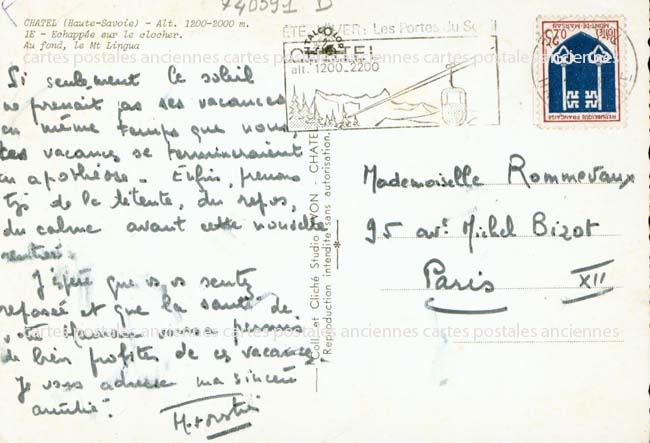 740591 D
CHATEL (Haute-Savoie) - Alt. 1200-2000 m.
1E - Echappée sur le clocher.
Au fond, le Mt Lingua
Si seulement le soleil
ne prenait pas ses vacances
en même temps que nous,
les vacances se termineraient
en apothéose. Enfin, prenons
tjs de la détente, du repos,
du calme avant cette nouvelle
rentrée.
J'espère que vs vs sentez
reposée et que la santé de
permis
de bien profiter de ces vacances
Je vous adresse ma sincère
amitié.
Coll. et Cliché Studio YVON - CHATEL
Reproduction interdite sans autorisation.
ÉTÉ HIVER: Les Portes du Soleil
CHATEL
alt. 1200-2200
POSTES
0,25
MONT-DE-MARSAN
REPUBLIQUE FRANÇAISE
Mademoiselle Rommevaux
95 av. Michel Bizot
Paris XII
cartes postales anciennes cartes postales anciennes cartes postales anciennes
cartes postales anciennes cartes postales anciennes cartes postales anciennes